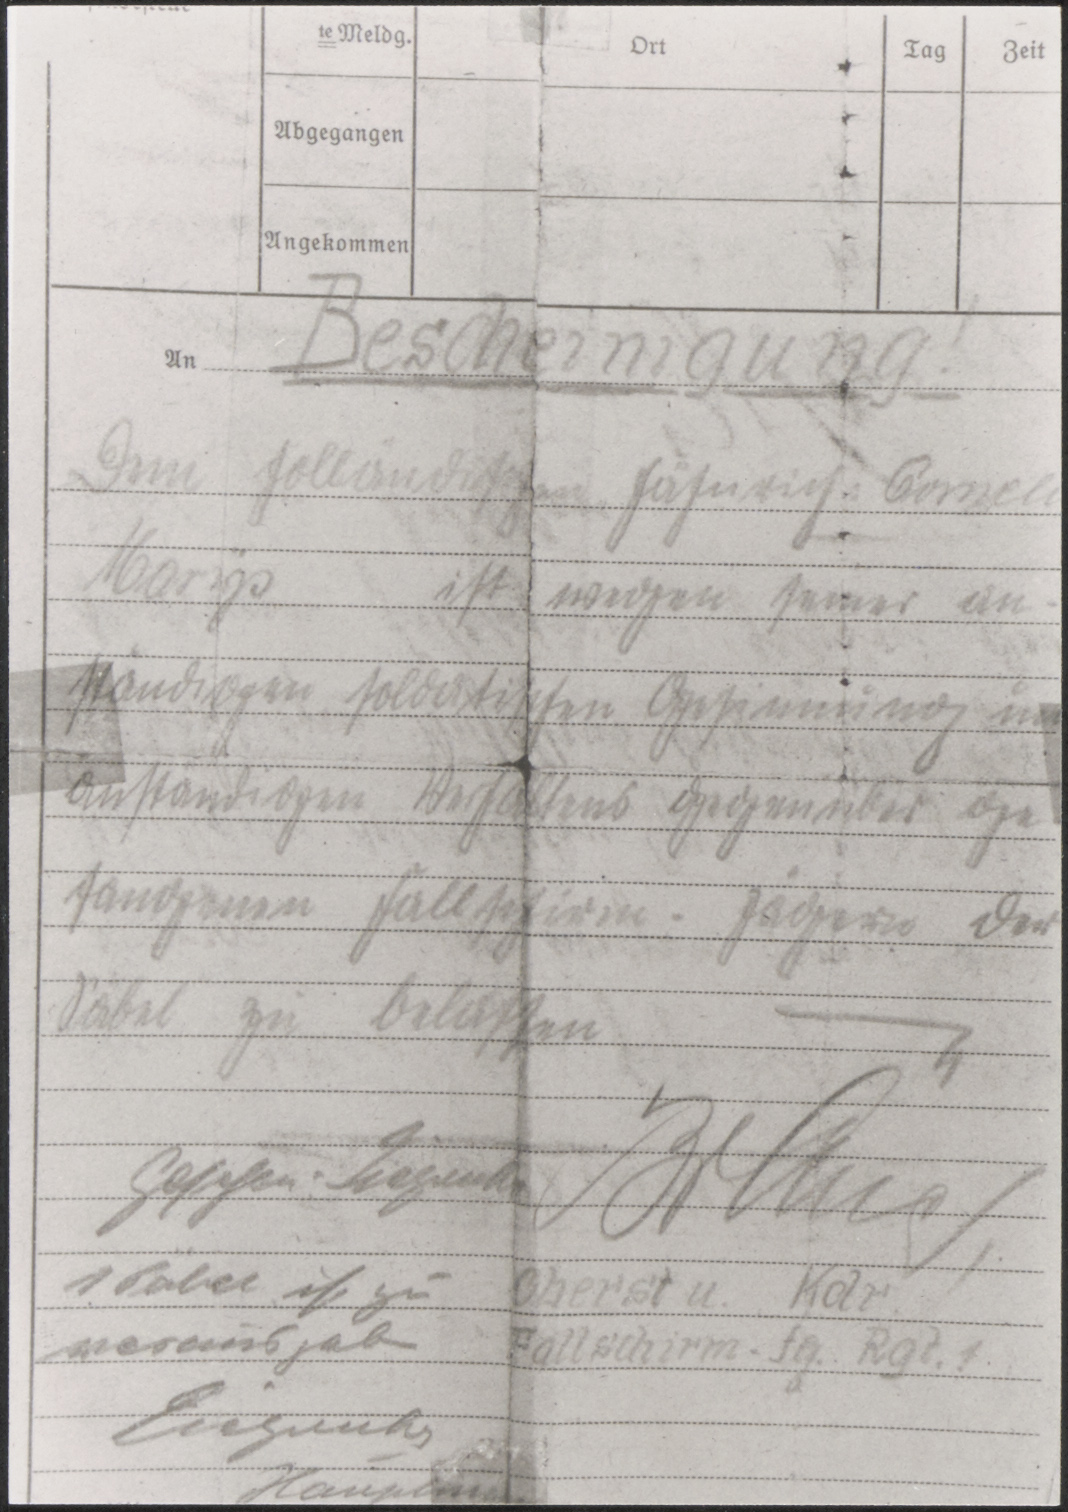 te Meldg. Ort Tag Zeit
Abgegangen
Angekommen
An Bescheinigung!
Dem holländischen Fähnrich Corneli
Marijs ist wegen seiner an-
ständigen soldatischen Gesinnung un
anständigen Verhaltens gegenüber ge
fangenen Fallschirm-Jägern der
Säbel zu belassen
Gesehen:
1 Säbel ist zu
Oberst u. Kdr.
Fallschirm-Jg. Rgt. 1.
Hauptmann